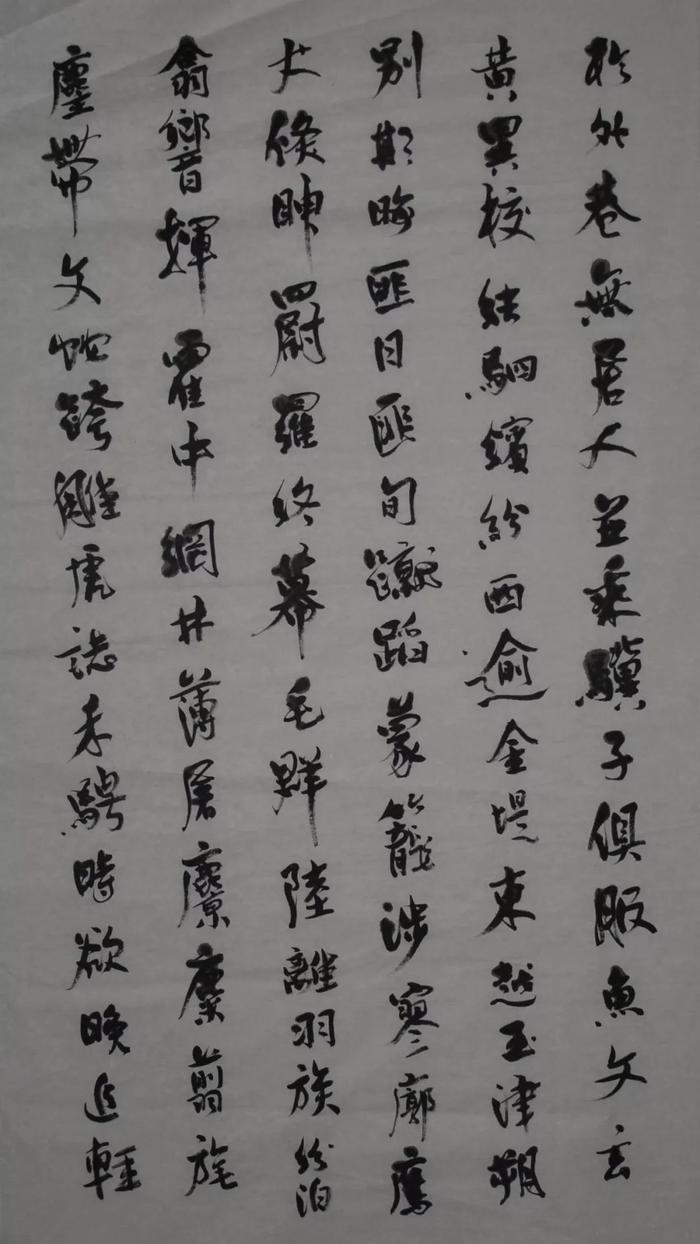 於外巷無居人並乘驥子俱服魚文玄
黃異校結駟繽紛西逾金堤東越玉津朔
別期晦匪日匪旬蹴蹈蒙籠涉寥廓鷹
犬倏眒罻羅終幕毛群陸離羽族紛泊
翕響揮霍中網林薄屠麖麋翦旄
麈帶文蛇跨雕虎志未騁時欲晚追輕